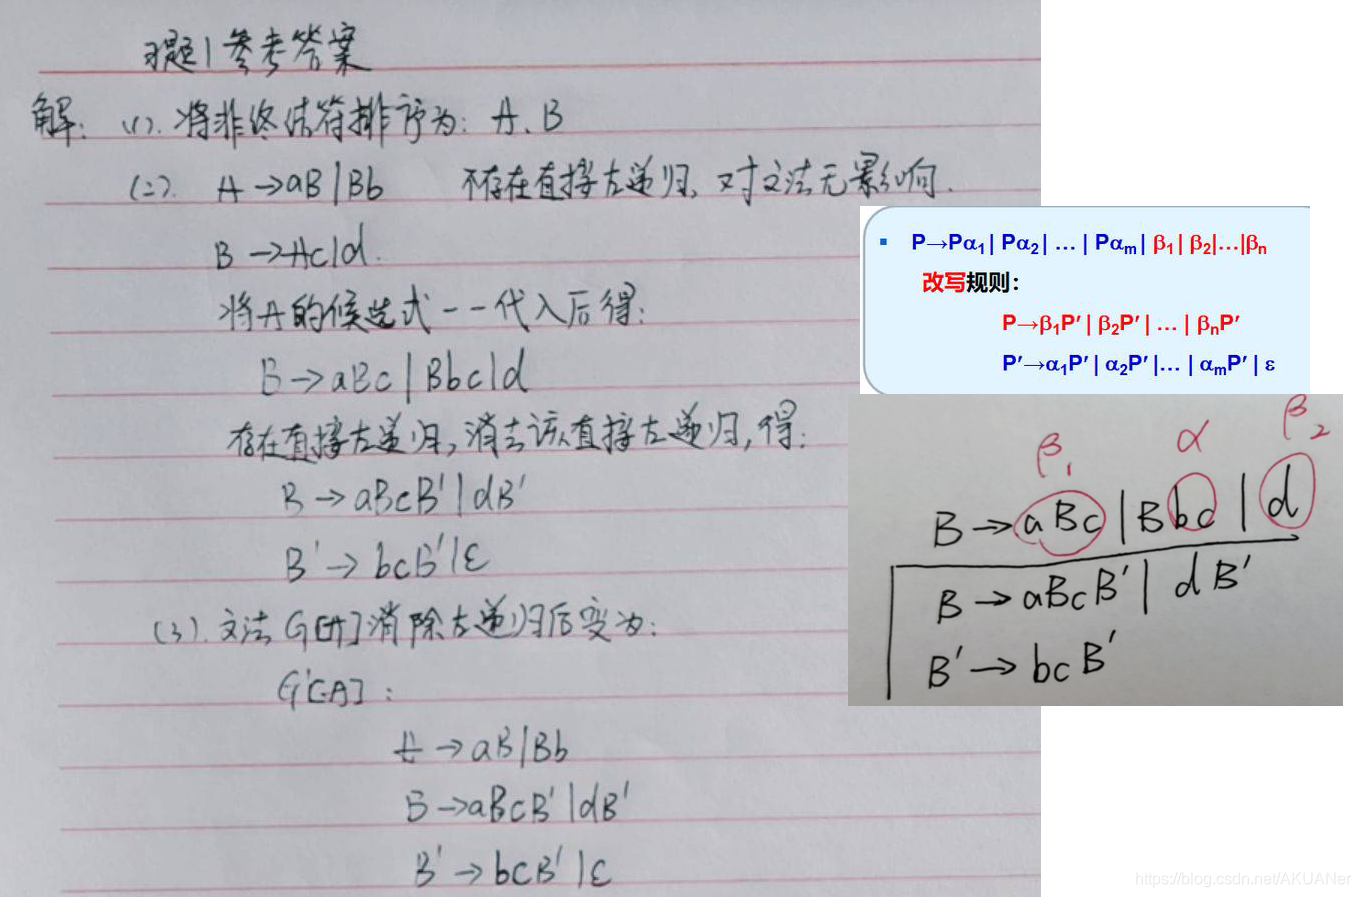 习题1参考答案
解: (1). 将非终结符排序为: A、B
(二). A→aB|Bb 不存在直接左递归, 对文法无影响.
B→Ac|d.
将A的候选式一一代入后得:
B→aBc|Bbc|d
存在直接左递归, 消去该直接左递归, 得:
B→aBcB'|dB'
B'→bcB'|ε
(3). 文法G[A]消除左递归后变为:
G'[A]:
A→aB|Bb
B→aBcB'|dB'
B'→bcB'|ε
▪ P→Pα1| Pα2| … | Pαm| β1| β2|…|βn
改写规则:
P→β1P′| β2P′| … | βnP′
P′→α1P′| α2P′|… | αmP′| ε
β1 α β2
B→aBc|Bbc|d
B→aBcB'| dB'
B'→bcB'
https://blog.csdn.net/AKUANer